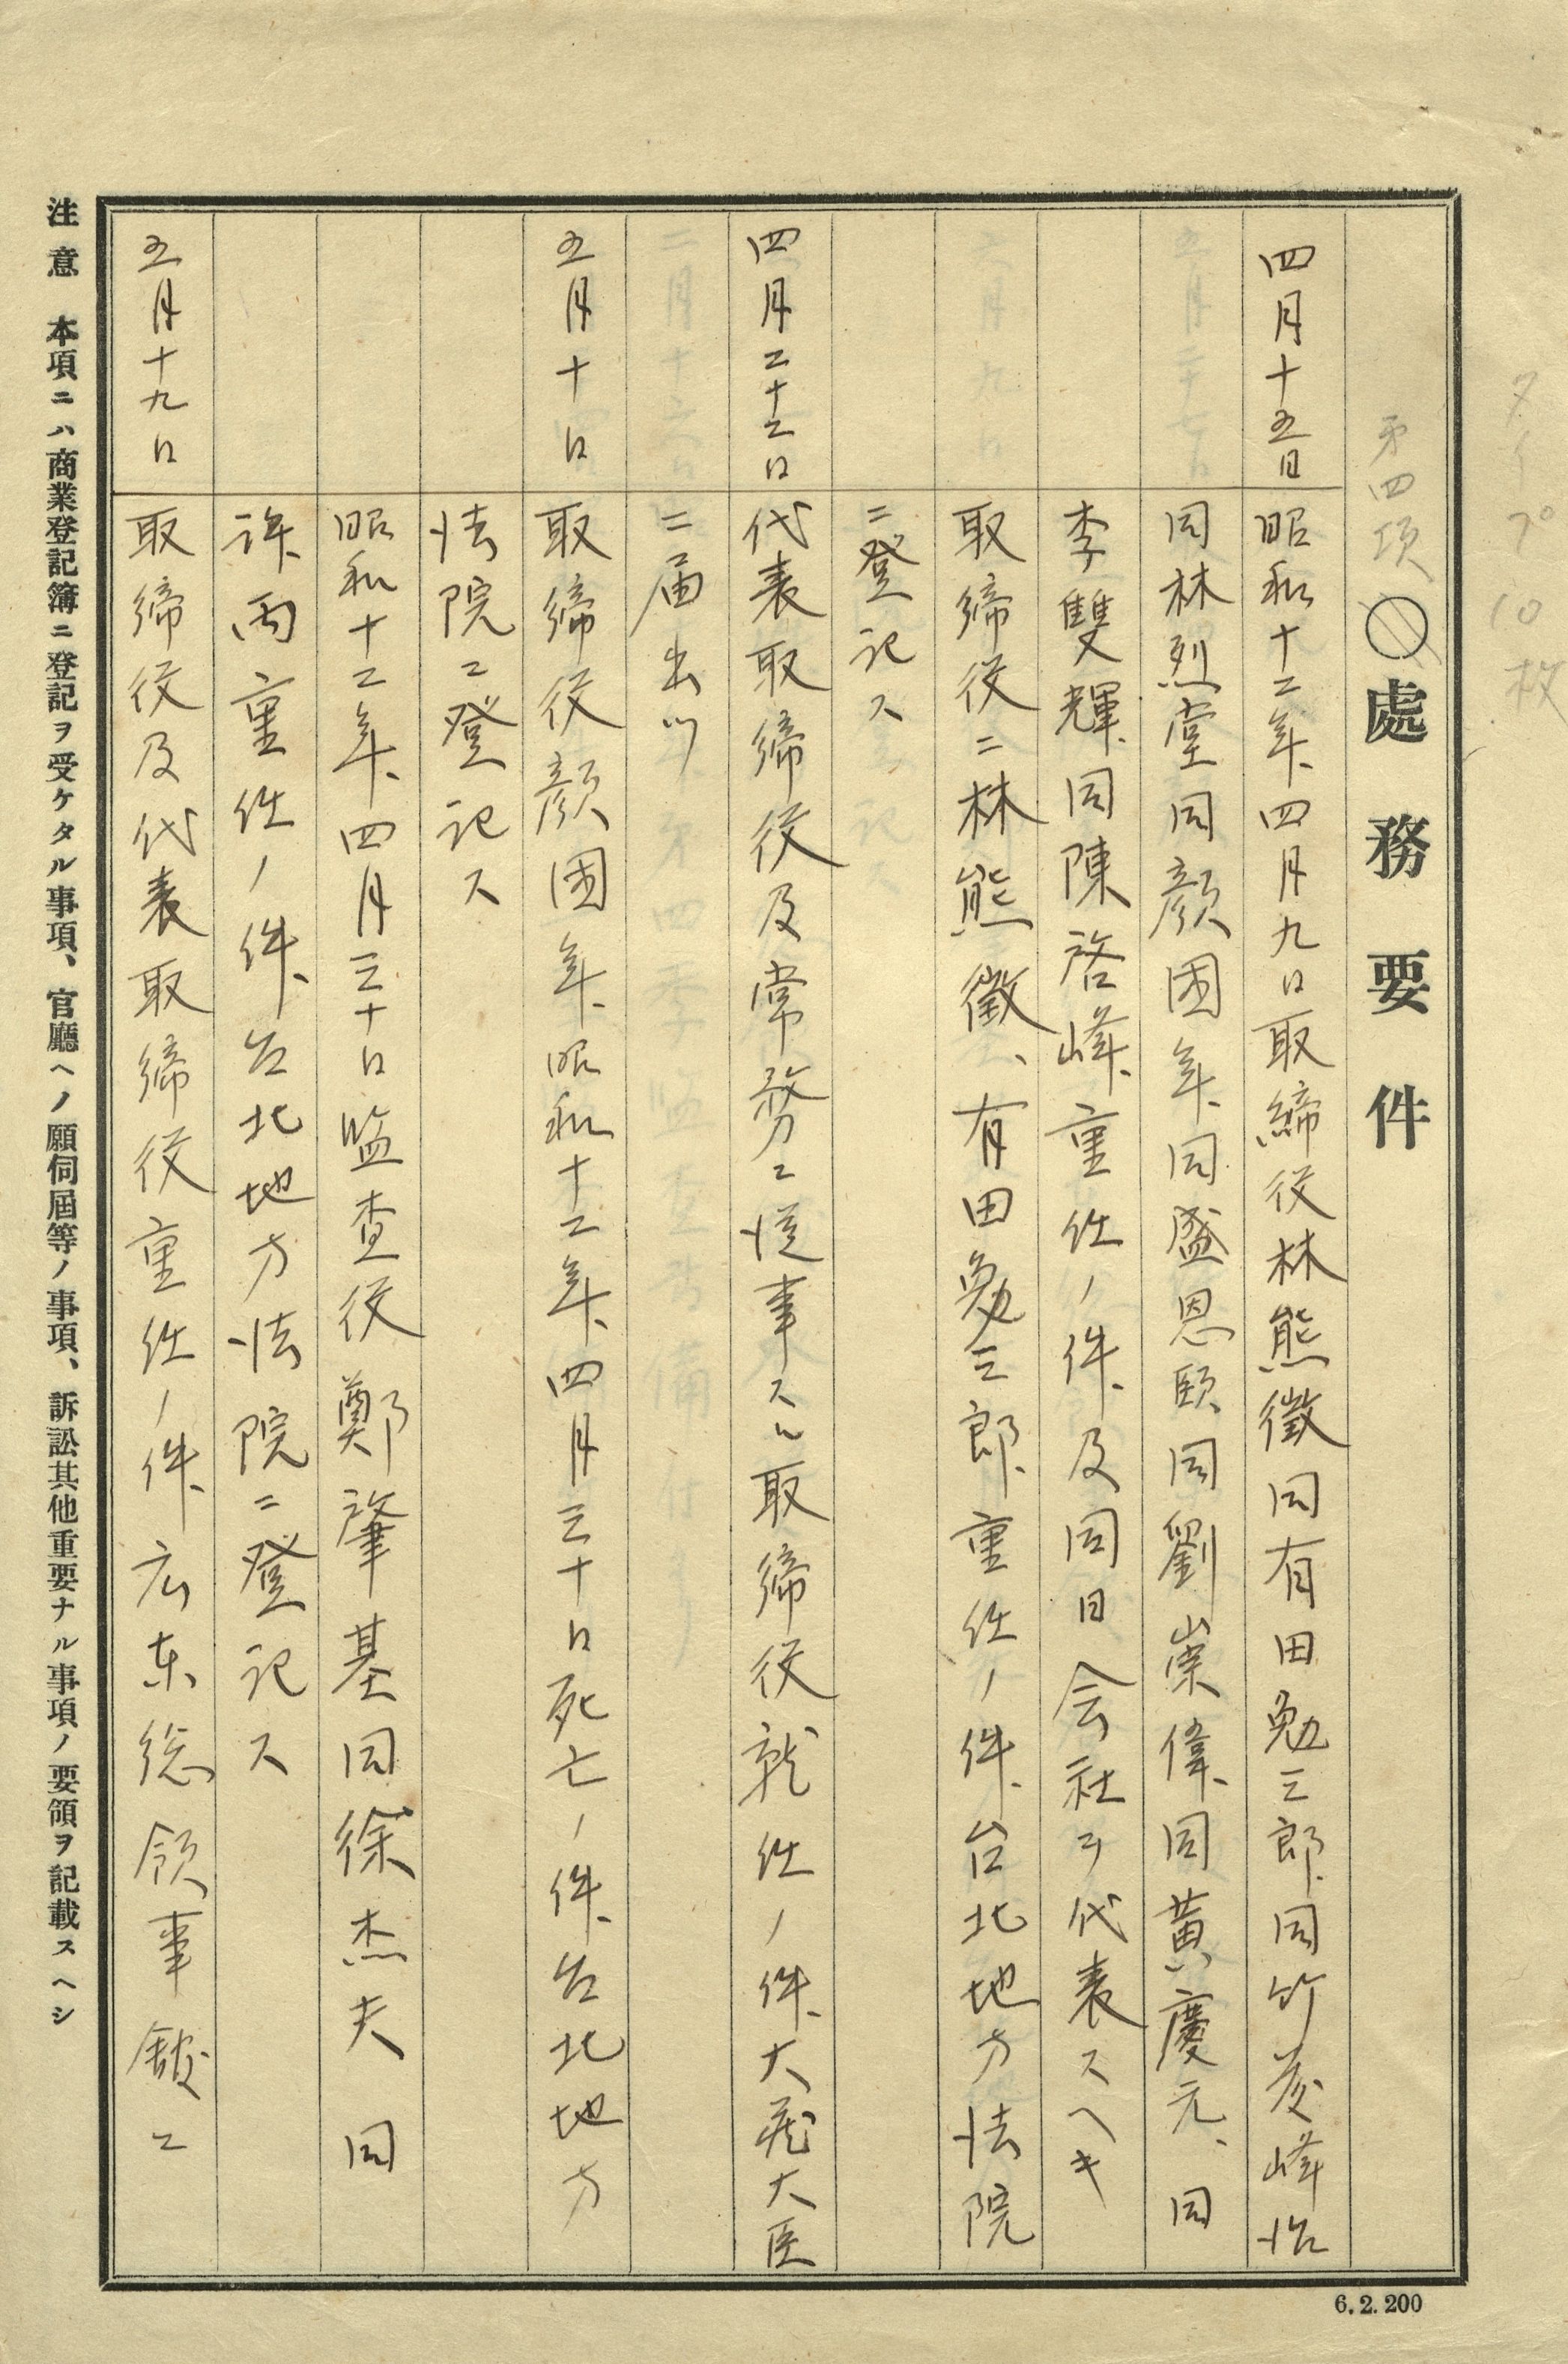 タイプ10枚
第四項
○處務要件
四月十五日
昭和十二年四月九日取締役林熊徴同有田勉三郎、同竹菱峰治
同林烈堂同顔国年、同盛恩頤同劉崇偉、同黃慶元、同
李雙輝、同陳啓峰、重任ノ件、及同日会社ヲ代表スヘキ
取締役ニ林熊徴、有田勉三郎、重任ノ件、台北地方法院
ニ登記ス
四月二十二日
代表取締役及常務ニ従事スル取締役就任ノ件、大蔵大臣
ニ届出ツ
五月十日
取締役顔国年、昭和十二年、四月三十日死亡ノ件、台北地方
法院ニ登記ス
昭和十二年、四月三十日監査役鄭肇基同徐杰夫同
許丙重任ノ件、台北地方法院ニ登記ス
五月十九日
取締役及代表取締役重任ノ件、広東総領事館ニ
注意 本項ニハ商業登記簿ニ登記ヲ受ケタル事項、官廳ヘノ願伺屆等ノ事項、訴訟其他重要ナル事項ノ要領ヲ記載スヘシ
6.2.200